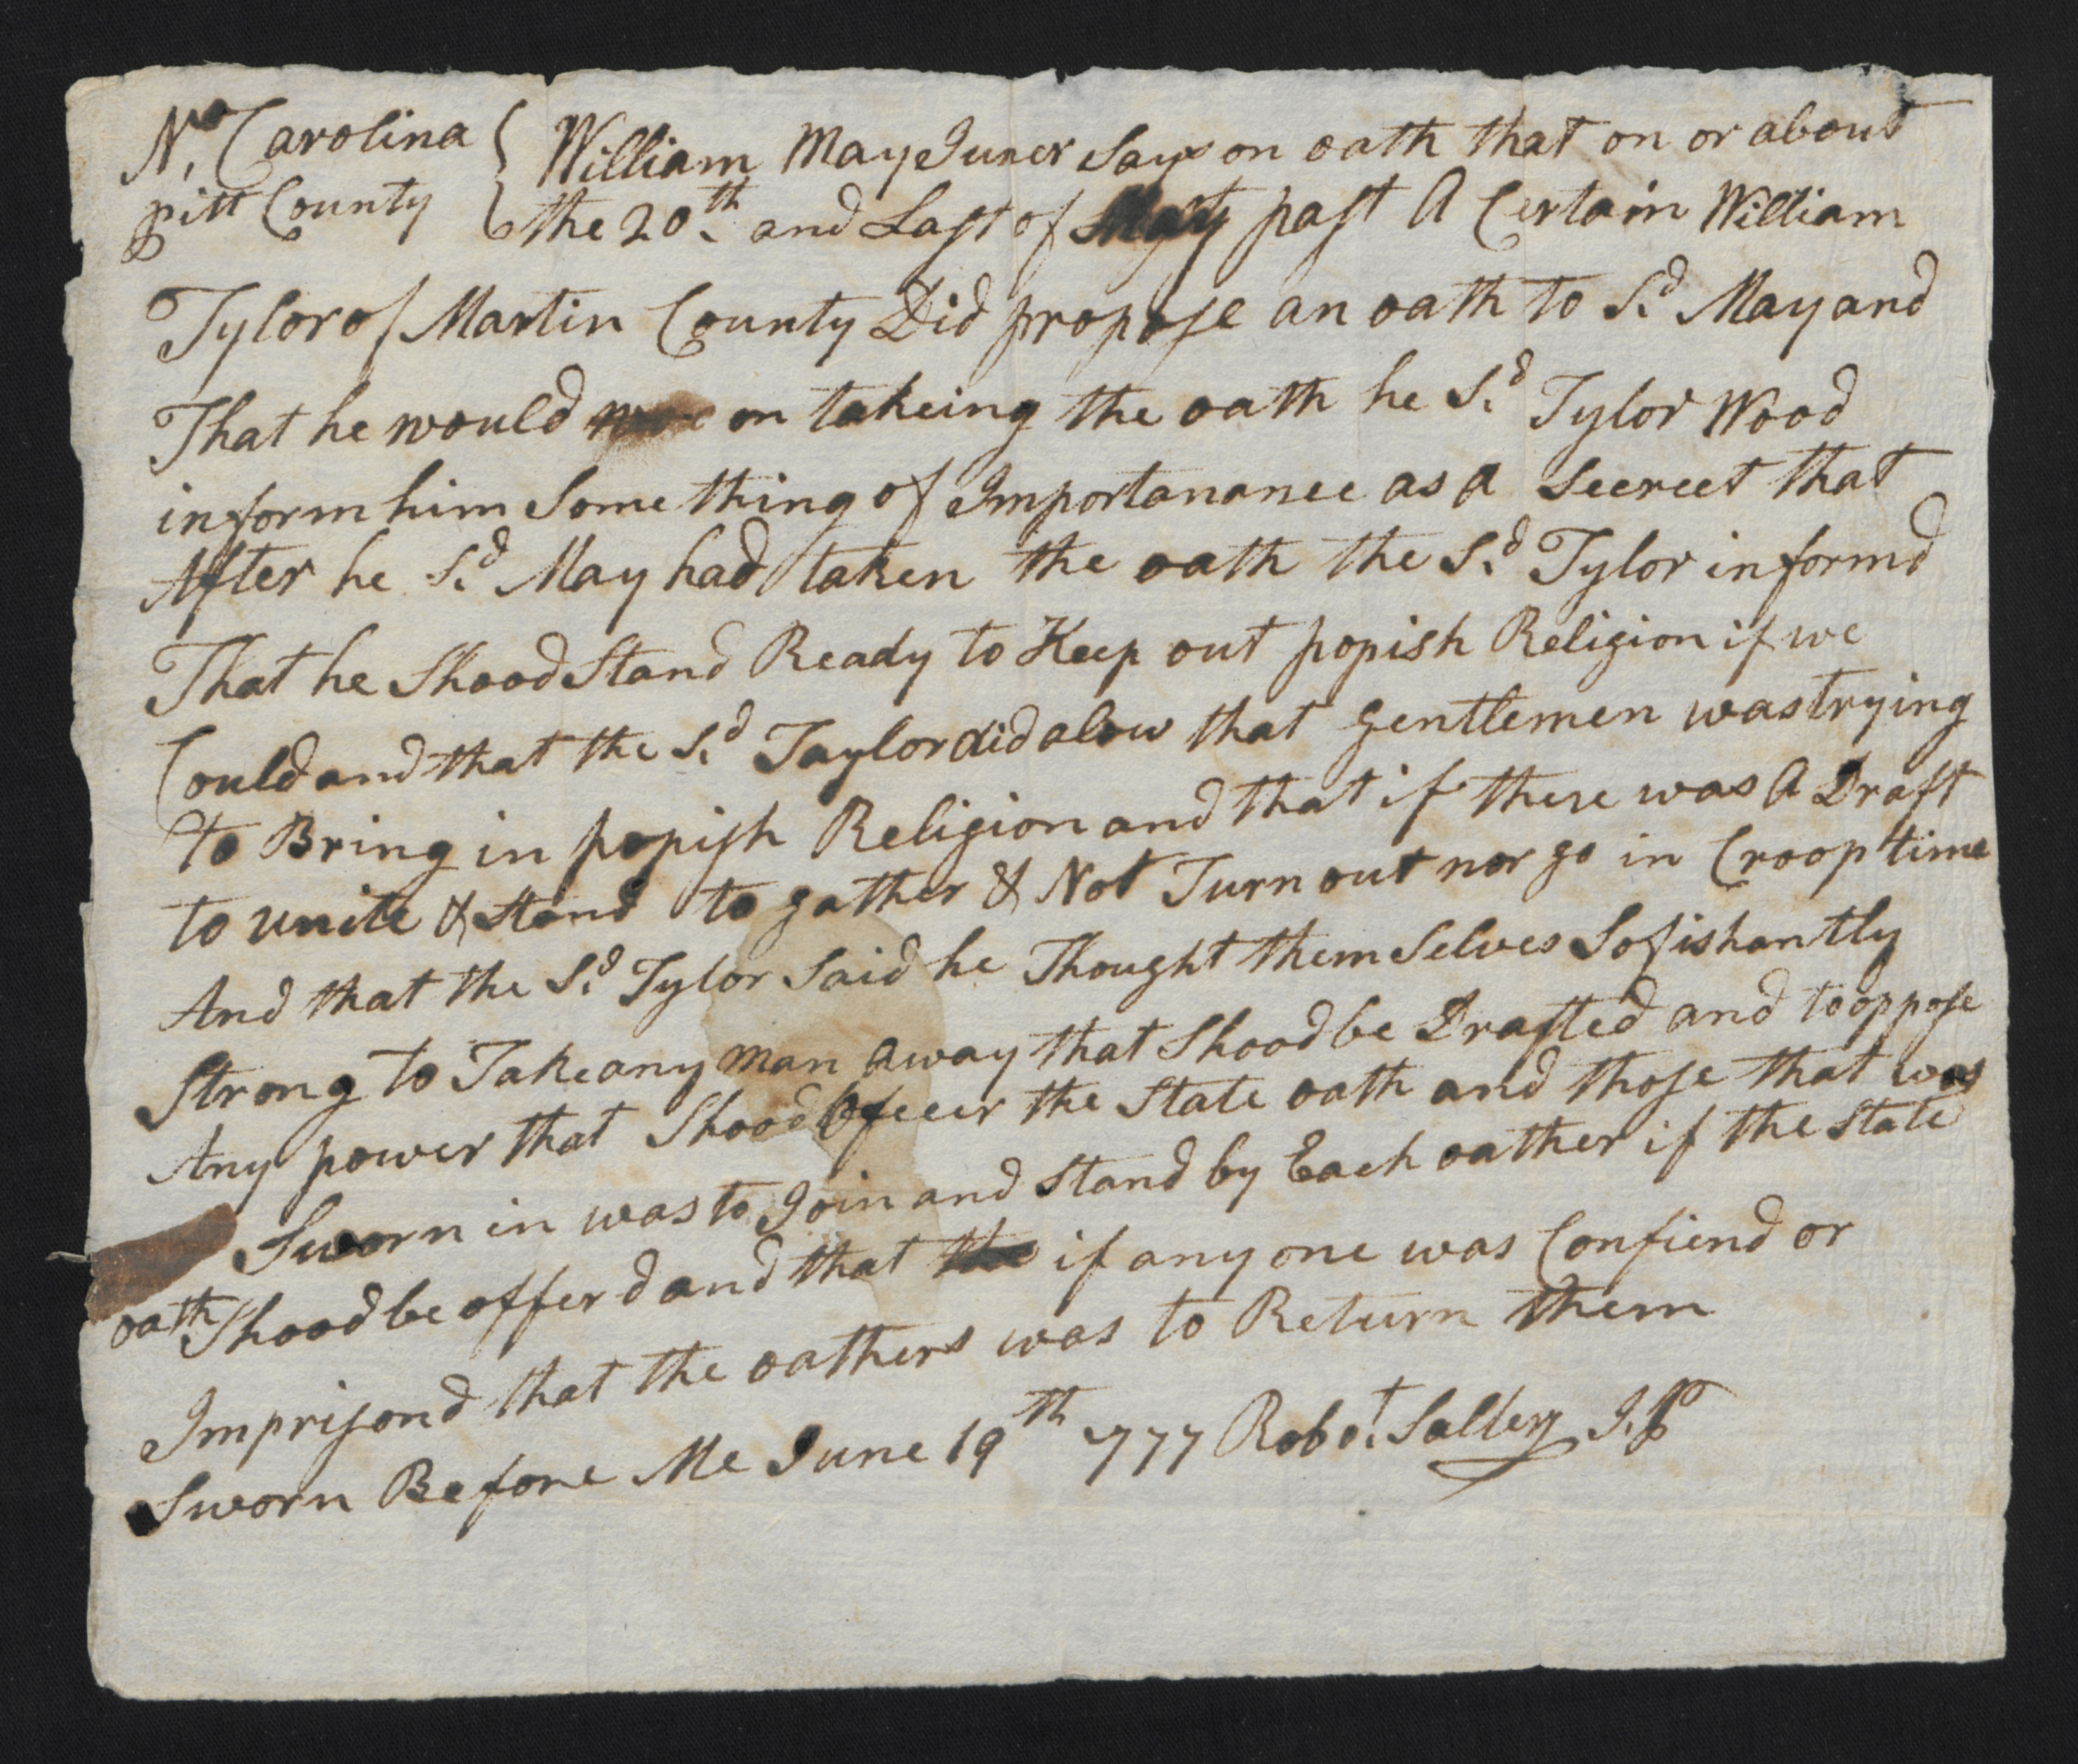 No. Carolina { William May Juner Says on oath that on or about
pitt County { the 20th. and Last of May past A Certain William
Tylor of Martin County Did propose an oath to Sd. May and
That he would on takeing the oath he Sd. Tylor Wood
inform him Some thing of Importananee as a Seereet that
After he Sd. May had taken the oath the Sd. Tylor informd
That he Shood Stand Ready to Keep out popish Religion if we
Could and that the Sd. Taylor did alow that gentlemen was trying
to Bring in popish Religion and that if there was A Draft
to unite & Stand to gather & Not Turn out nor go in Croop time
And that the Sd. Tylor Said he Thought them Selves Sofishantly
Strong to Take any man away that Shood be Drafted and to oppose
Any power that Shood Ofeeir the State oath and those that was
Sworn in was to Join and Stand by Each oather if the State
oath Shood be offerd and that the if any one was Confiend or
Imprisond that the oathers was to Return them
Sworn Before Me June 19th 1777 Robt. Salter J.P